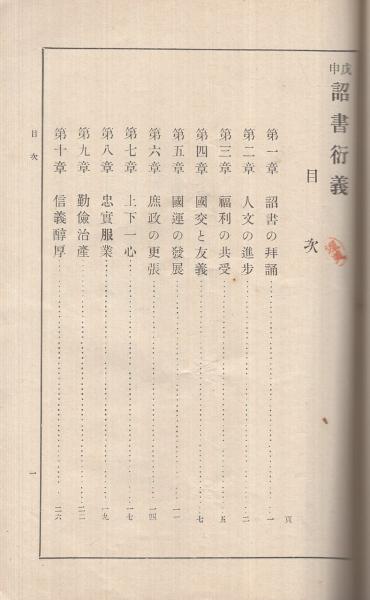 戊申 詔書衍義
目次
頁
第一章 詔書の拜誦 一
第二章 人文の進步 二
第三章 福利の共受 五
第四章 國交と友義 七
第五章 國運の發展 一一
第六章 庶政の更張 一四
第七章 上下一心 一七
第八章 忠實服業 一九
第九章 勤儉治產 二二
第十章 信義醇厚 二六
目次
一